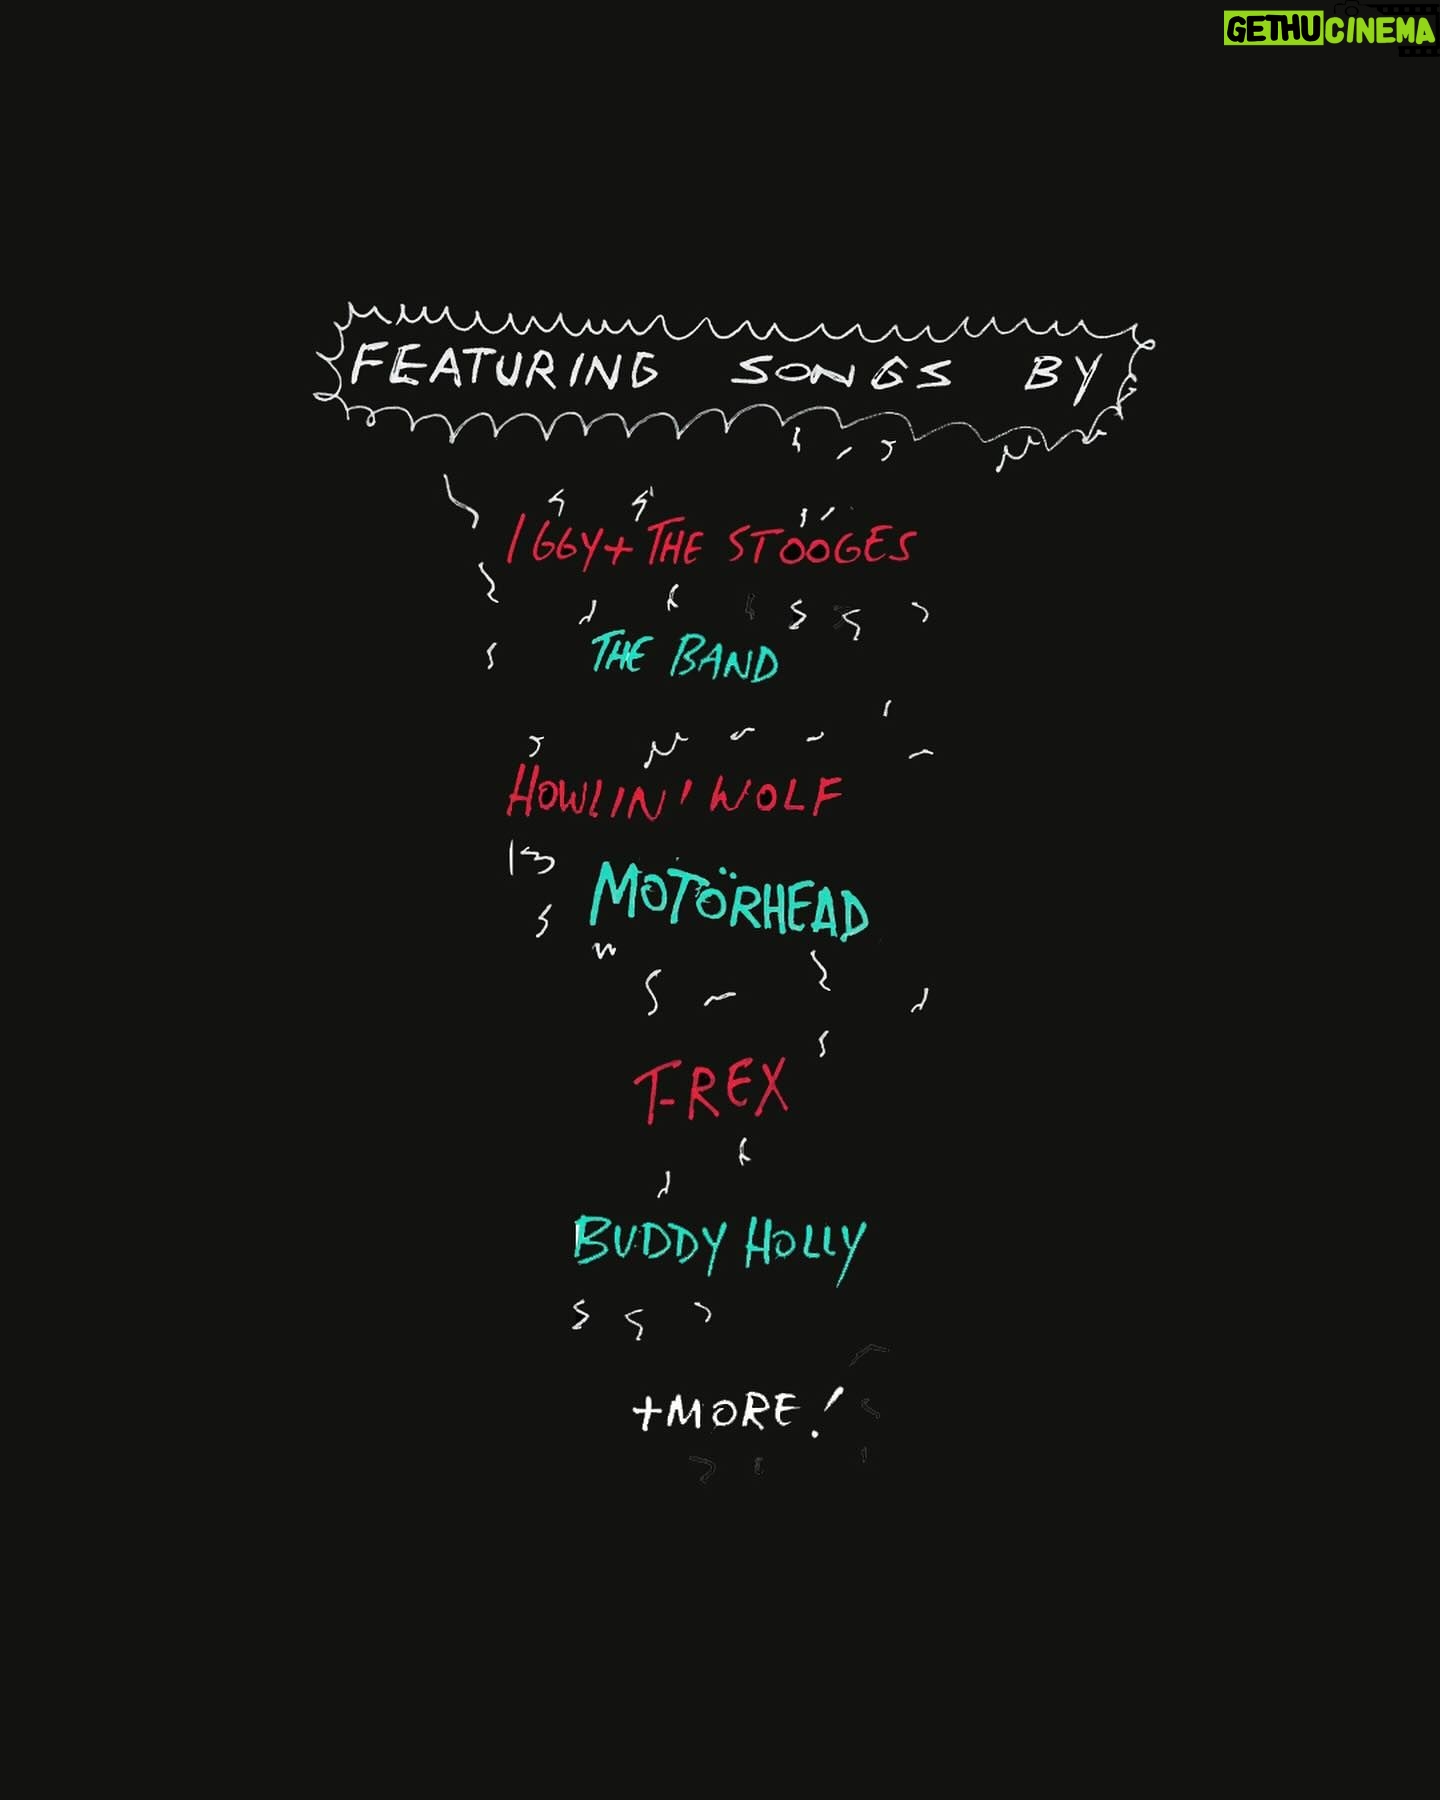 GETHUCINEMA
FEATURING SONGS BY
IGGY + THE STOOGES
THE BAND
HOWLIN' WOLF
MOTÖRHEAD
T-REX
BUDDY HOLLY
+MORE!